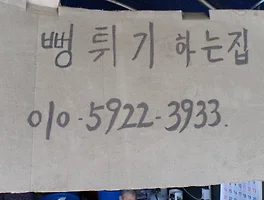 뻥 튀기 하는집
010-5922-3933.